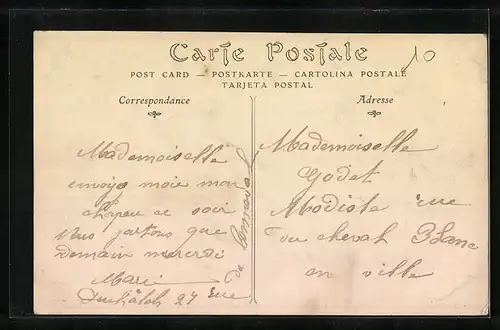 Carte Postale
10
POST CARD — POSTKARTE — CARTOLINA POSTALE
TARJETA POSTAL
Correspondance
Adresse
Mademoiselle
envoye moie mon
chapeu ce soir
Nus partons que
demain mercredi
Marie
27 rue
de
Mademoiselle
Godet
Modiste rue
du cheval Blanc
en ville